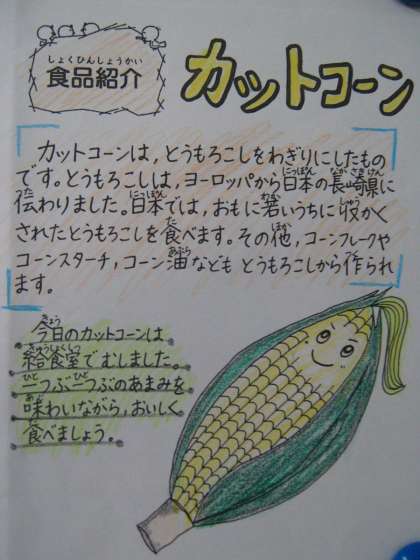 しょくひんしょうかい
食品紹介
カットコーン
カットコーンは，とうもろこしをわぎりにしたもの
です。とうもろこしは，ヨーロッパから日本の長崎県に
伝わりました。日本では，おもに若いうちに収かく
されたとうもろこしを食べます。その他，コーンフレークや
コーンスターチ，コーン油などもとうもろこしから作られ
ます。
今日のカットコーンは
給食室でむしました。
一つぶ一つぶのあまみを
味わいながら，おいしく
食べましょう。